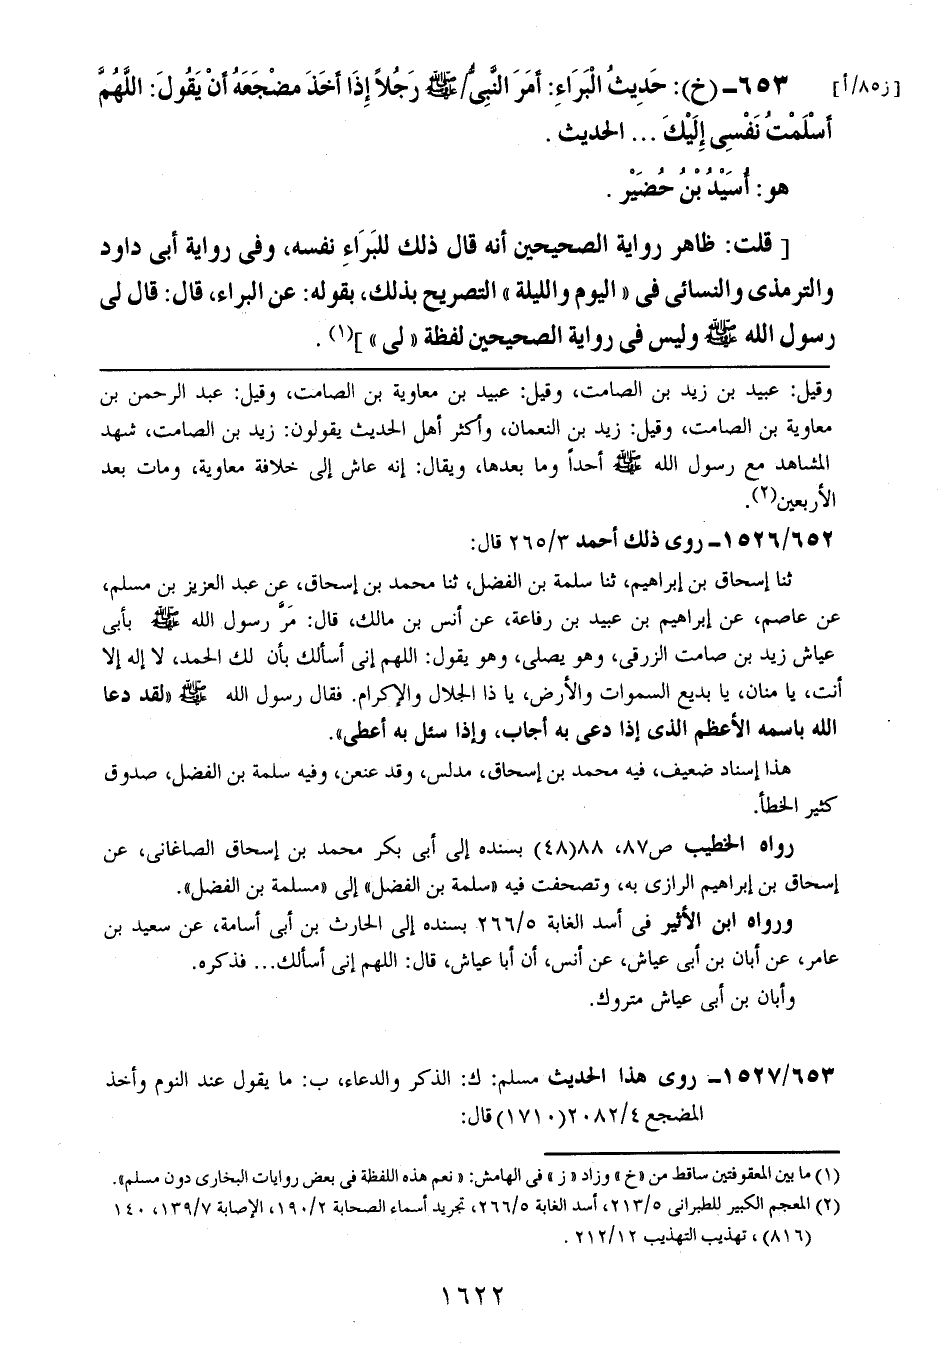 [ز٨٥/أ] ٦٥٣ـ (خ): حَدِيثُ الْبَرَاءِ: أَمَرَ النَّبِىُّ/ﷺ رَجُلاً إِذَا أَخَذَ مضْجَعَهُ أَنْ يَقُولَ: اللَّهُمَّ
أَسْلَمْتُ نَفْسِى إِلَيْكَ ... الحديث .
هو: أُسَيْدُ بْنُ حُضَيْرٍ .
[ قلت: ظاهر رواية الصحيحين أنه قال ذلك للبَرَاءِ نفسه، وفى رواية أبى داود
والترمذى والنسائى فى « اليوم والليلة » التصريح بذلك، بقوله: عن البراء، قال: قال لى
رسول الله ﷺ وليس فى رواية الصحيحين لفظة « لى » ](١) .
وقيل: عبيد بن زيد بن الصامت، وقيل: عبيد بن معاوية بن الصامت، وقيل: عبد الرحمن بن
معاوية بن الصامت، وقيل: زيد بن النعمان، وأكثر أهل الحديث يقولون: زيد بن الصامت، شهد
المشاهد مع رسول الله ﷺ أحداً وما بعدها، ويقال: إنه عاش إلى خلافة معاوية، ومات بعد
الأربعين(٢).
١٥٢٦/٦٥٢ـ روى ذلك أحمد ٢٦٥/٣ قال:
ثنا إسحاق بن إبراهيم، ثنا سلمة بن الفضل، ثنا محمد بن إسحاق، عن عبد العزيز بن مسلم،
عن عاصم، عن إبراهيم بن عبيد بن رفاعة، عن أنس بن مالك، قال: مَرَّ رسول الله ﷺ بأبى
عياش زيد بن صامت الزرقى، وهو يصلى، وهو يقول: اللهم إنى أسألك بأن لك الحمد، لا إله إلا
أنت، يا منان، يا بديع السموات والأرض، يا ذا الجلال والإكرام. فقال رسول الله ﷺ «لقد دعا
الله باسمه الأعظم الذى إذا دعى به أجاب، وإذا سئل به أعطى».
هذا إسناد ضعيف، فيه محمد بن إسحاق، مدلس، وقد عنعن، وفيه سلمة بن الفضل، صدوق
كثير الخطأ.
رواه الخطيب ص٨٧، ٨٨(٤٨) بسنده إلى أبى بكر محمد بن إسحاق الصاغانى، عن
إسحاق بن إبراهيم الرازى به، وتصحفت فيه «سلمة بن الفضل» إلى «مسلمة بن الفضل».
ورواه ابن الأثير فى أسد الغابة ٢٦٦/٥ بسنده إلى الحارث بن أبى أسامة، عن سعيد بن
عامر، عن أبان بن أبى عياش، عن أنس، أن أبا عياش، قال: اللهم إنى أسألك... فذكره.
وأبان بن أبى عياش متروك.
١٥٢٧/٦٥٣ـ روى هذا الحديث مسلم: ك: الذكر والدعاء، ب: ما يقول عند النوم وأخذ
المضجع ٢٠٨٢/٤(١٧١٠) قال:
(١) ما بين المعقوفتين ساقط من «خ» وزاد « ز » فى الهامش: « نعم هذه اللفظة فى بعض روايات البخارى دون مسلم».
(٢) المعجم الكبير للطبرانى ٢١٣/٥، أسد الغابة ٢٦٦/٥، تجريد أسماء الصحابة ١٩٠/٢، الإصابة ١٣٩/٧، ١٤٠
(٨١٦) ، تهذيب التهذيب ٢١٢/١٢ .
١٦٢٢